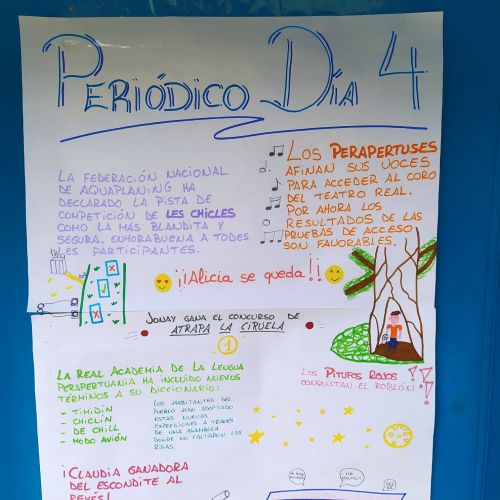 PERIÓDICO DÍA 4
LA FEDERACIÓN NACIONAL
DE AQUAPLANING HA
DECLARADO LA PISTA DE
COMPETICIÓN DE LES CHICLES
COMO LA MÁS BLANDITA Y
SEGURA. ENHORABUENA A TODES
LES PARTICIPANTES.
LOS PERAPERTUSES
AFINAN SUS VOCES
PARA ACCEDER AL CORO
DEL TEATRO REAL.
POR AHORA LOS
RESULTADOS DE LAS
PRUEBAS DE ACCESO
SON FAVORABLES.
¡¡Alicia se queda!!
JONAY GANA EL CONCURSO DE
ATRAPA LA CIRUELA
1
LA REAL ACADEMIA DE LA LENGUA
PERAPERTUANIA HA INCLUIDO NUEVOS
TÉRMINOS A SU DICCIONARIO:
- TIMIDÍN
- CHICLÍN
- DE CHILL
- MODO AVIÓN
LOS HABITANTES DEL
PUEBLO HAN ADOPTADO
ESTAS NUEVAS
EXPRESIONES A TRAVÉS
DE UNA ASAMBLEA
DONDE NO FALTARON LAS
RISAS.
LOS PITUFOS ROJOS
CONQUISTAN EL ROBLÓN!!
¡CLAUDIA GANADORA
DEL ESCONDITE AL
REVÉS!